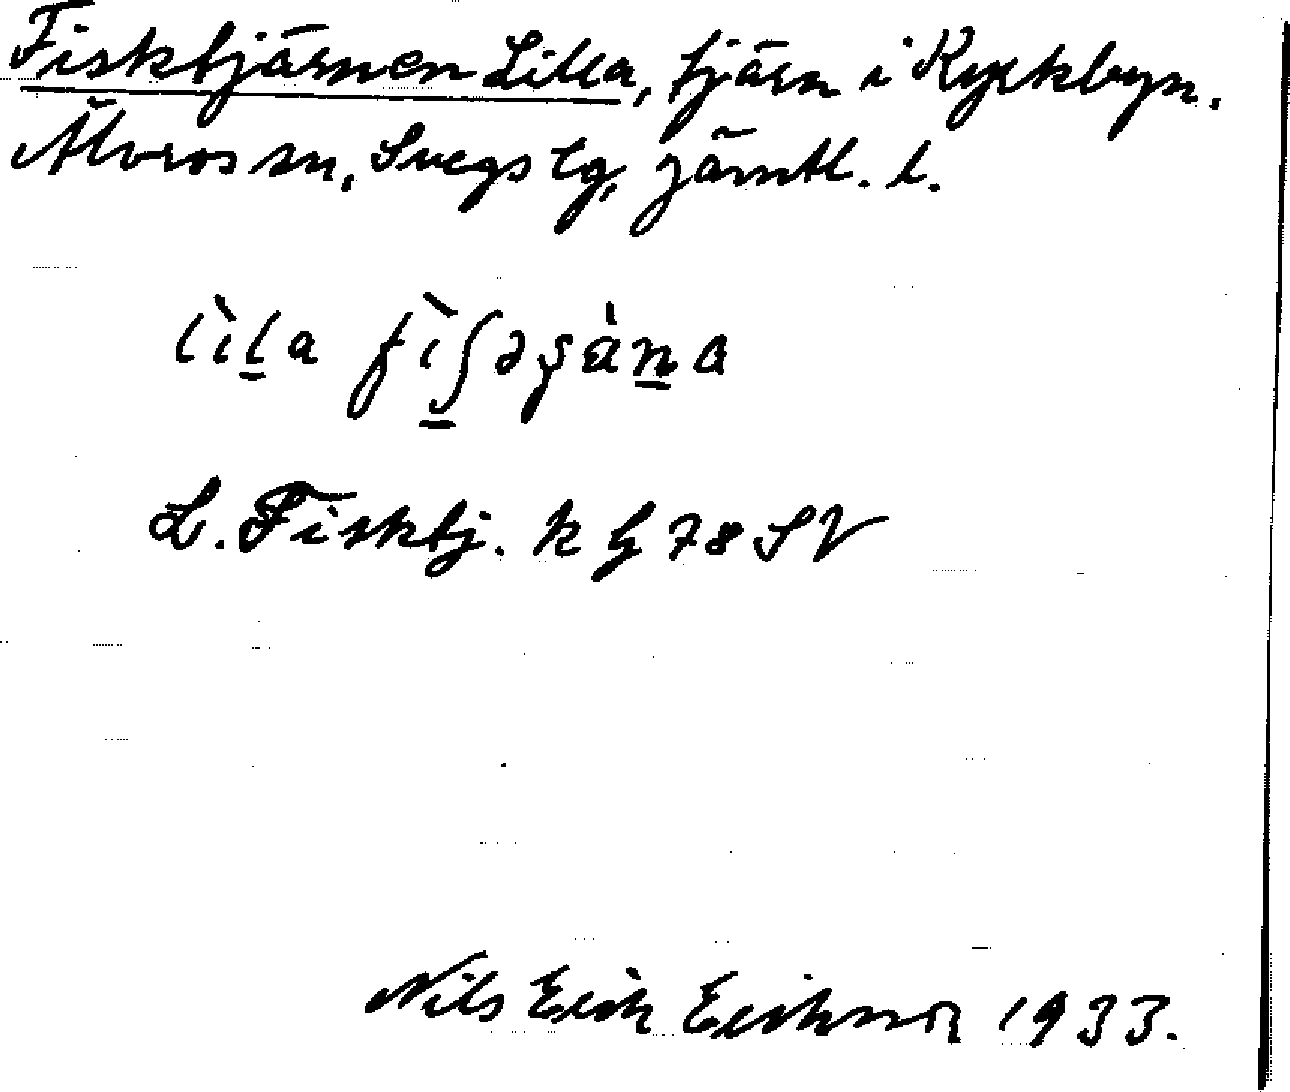 Fisktjärnen Lilla, tjärn i Kyrkbyn.
Älvros sn, Svegs tg, Jämtl. l.
L. Fisktj. k bl 78 SV
Nils Erik Eriksson 1933.